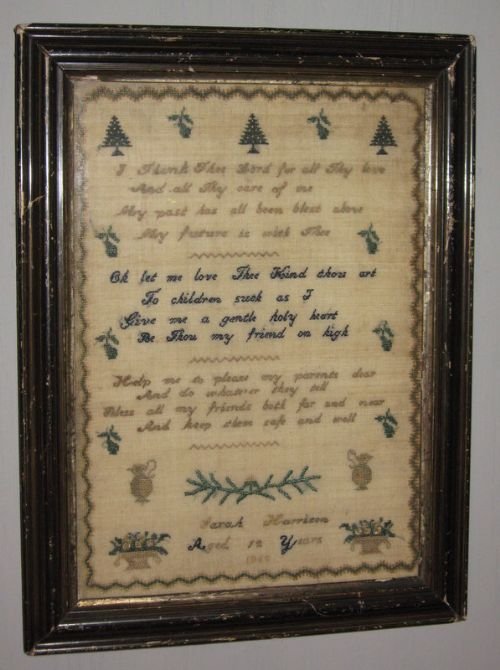 I Thank Thee Lord for all Thy love
And all Thy care of me
My past has all been blest above
My future is with Thee
Oh let me love Thee Kind thou art
To children such as I
Give me a gentle holy heart
Be Thou my friend on high
Help me to please my parents dear
And do whatever they tell
Bless all my friends both far and near
And keep them safe and well
Sarah Harrison
Aged 12 Years